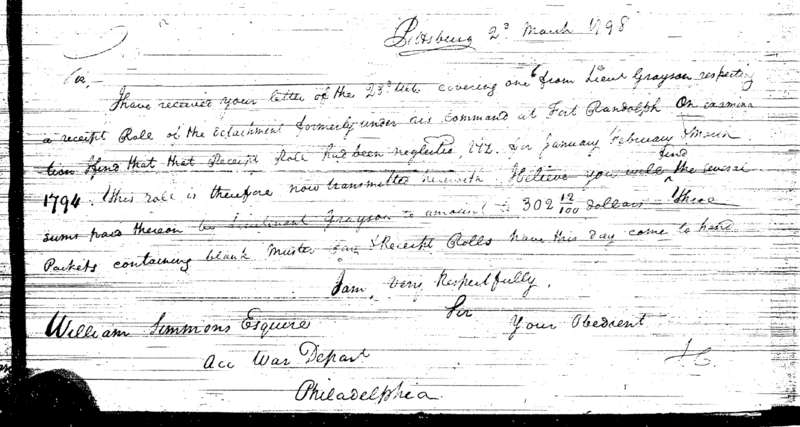 Pittsburg 2d March 1798
Sir,
I have received your letter of the 23d Ulto covering one from Lieut Grayson respecting
a receipt Role of the detachment formerly under his command at Fort Randolph On examina
tion I find that that Receipt Role had been neglected, Viz. for January February & March
1794. This role is therefore now transmitted herewith I believe you will find the several
sums paid thereon by Lieutenant Grayson to amount to 302 12/100 dollars - Three
Packets containing blank Muster Pay & Receipt Rolls have this day come to hand
I am, very Respectfully,
Sir
Your Obedient
William Simmons Esquire
Acc War Depart
Philadelphia